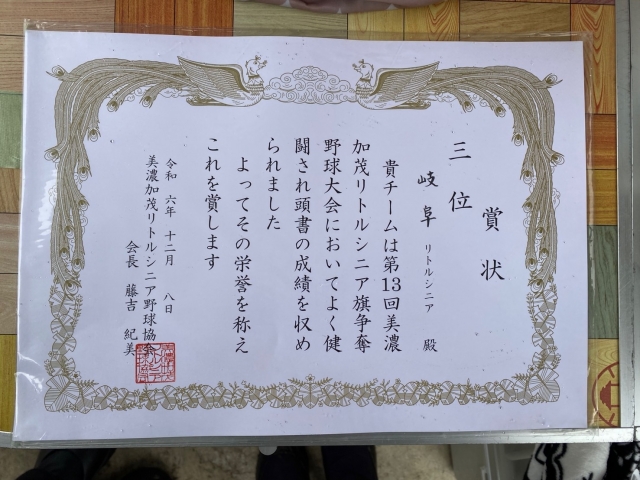 賞状
三位
岐阜リトルシニア 殿
貴チームは第13回美濃
加茂リトルシニア旗争奪
野球大会においてよく健
闘され頭書の成績を収め
られました
よってその栄誉を称え
これを賞します
令和 六年 十二月 八日
美濃加茂リトルシニア野球協会
会長 藤吉 紀美